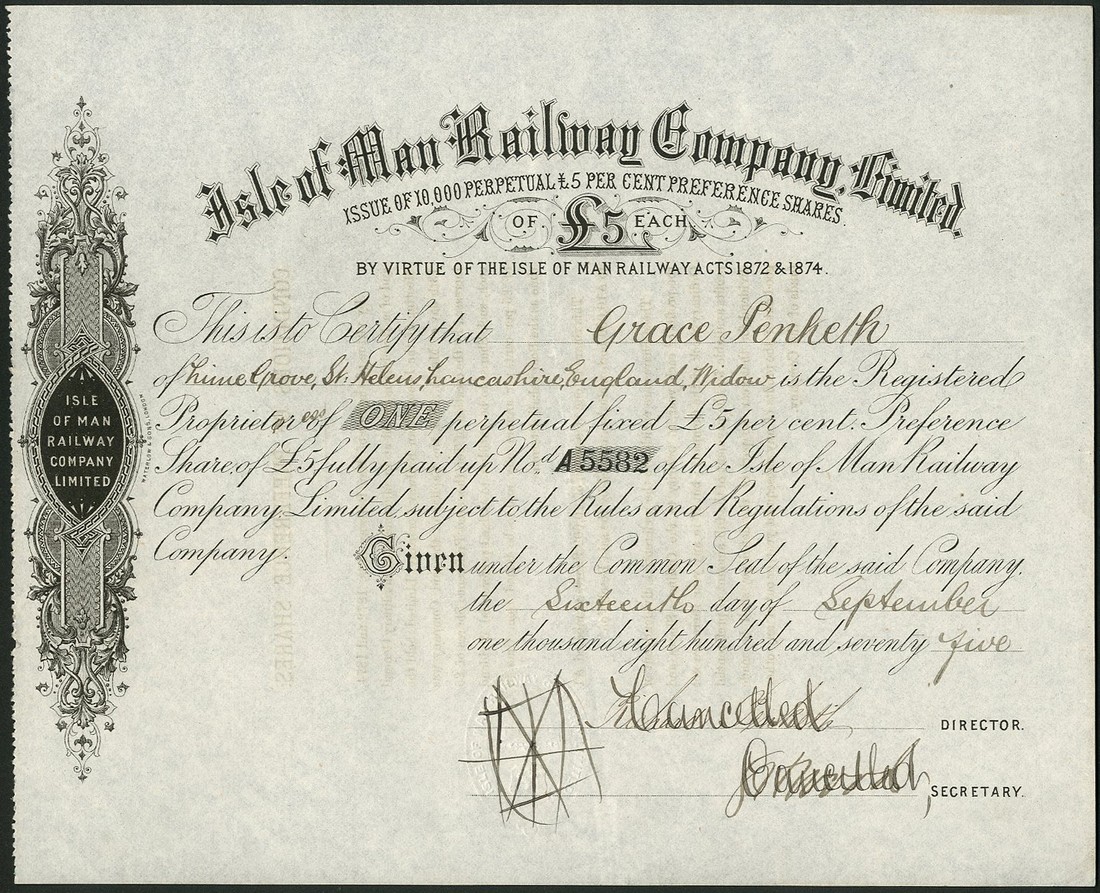 Isle of Man Railway Company, Limited.
ISSUE OF 10,000 PERPETUAL £5 PER CENT PREFERENCE SHARES
OF £5 EACH
BY VIRTUE OF THE ISLE OF MAN RAILWAY ACTS 1872 & 1874.
This is to Certify that Grace Penketh
of Lime Grove, St. Helens, Lancashire, England, Widow is the Registered
Proprietress of ONE perpetual fixed £5 per cent. Preference
Share, of £5 fully paid up No.d A5582 of the Isle of Man Railway
Company, Limited, subject to the Rules and Regulations of the said
Company.
Given under the Common Seal of the said Company,
the Sixteenth day of September
one thousand eight hundred and seventy five
Cancelled DIRECTOR.
Cancelled SECRETARY.
ISLE
OF MAN
RAILWAY
COMPANY
LIMITED
WATERLOW & SONS, LONDON